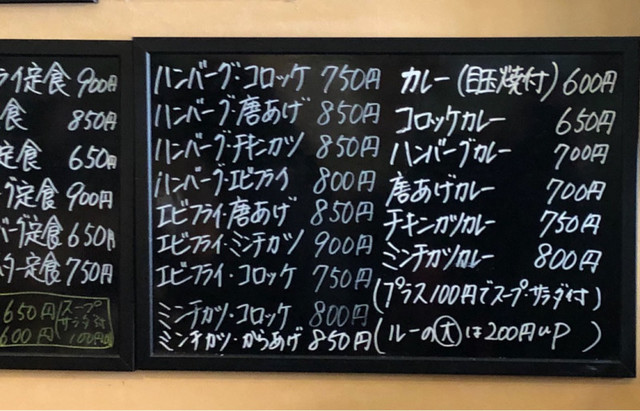 ライ定食 900円
食 850円
定食 650円
グ定食 900円
バーグ定食 650円
ター定食 750円
650円 スープ サラダ付
600円 100円
ハンバーグ・コロッケ 750円
ハンバーグ・唐あげ 850円
ハンバーグ・チキンカツ 850円
ハンバーグ・エビフライ 800円
エビフライ・唐あげ 850円
エビフライ・ミンチカツ 900円
エビフライ・コロッケ 750円
ミンチカツ・コロッケ 800円
ミンチカツ・からあげ 850円
カレー(目玉焼付) 600円
コロッケカレー 650円
ハンバーグカレー 700円
唐あげカレー 700円
チキンカツカレー 750円
ミンチカツカレー 800円
(プラス100円でスープ・サラダ付)
(ルーの大は200円up)